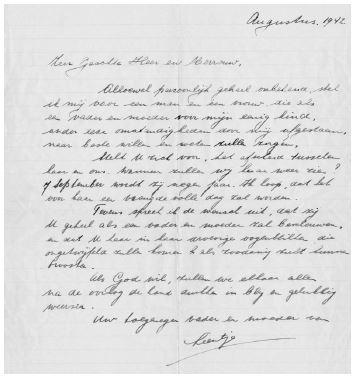 Augustus. 1942
Zeer Geachte Heer en Mevrouw,
Alhoewel persoonlijk geheel onbekend, stel
ik mij voor een man en een vrouw, die als
een vader en moeder voor mijn eenig kind,
onder deze omstandigheden door mij afgestaan,
naar beste willen en weten zullen zorgen.
Stelt U zich voor, het afscheid tusschen
haar en ons. Wanneer zullen wij haar weer zien?
7 September wordt zij negen jaar. Ik hoop, dat het
voor haar een vreugdevolle dag zal worden.
Tevens spreek ik de wensch uit, dat zij
U geheel als een vader en moeder zal beschouwen,
en dat U haar in haar droevige oogenblikken, die
ongetwijfeld zullen komen, als zoodanig zult kunnen
troosten.
Als God wil, zullen we elkaar allen
na de oorlog de hand drukken in blij en gelukkig
weerzien.
Uw toegenegen vader en moeder van
Leentje